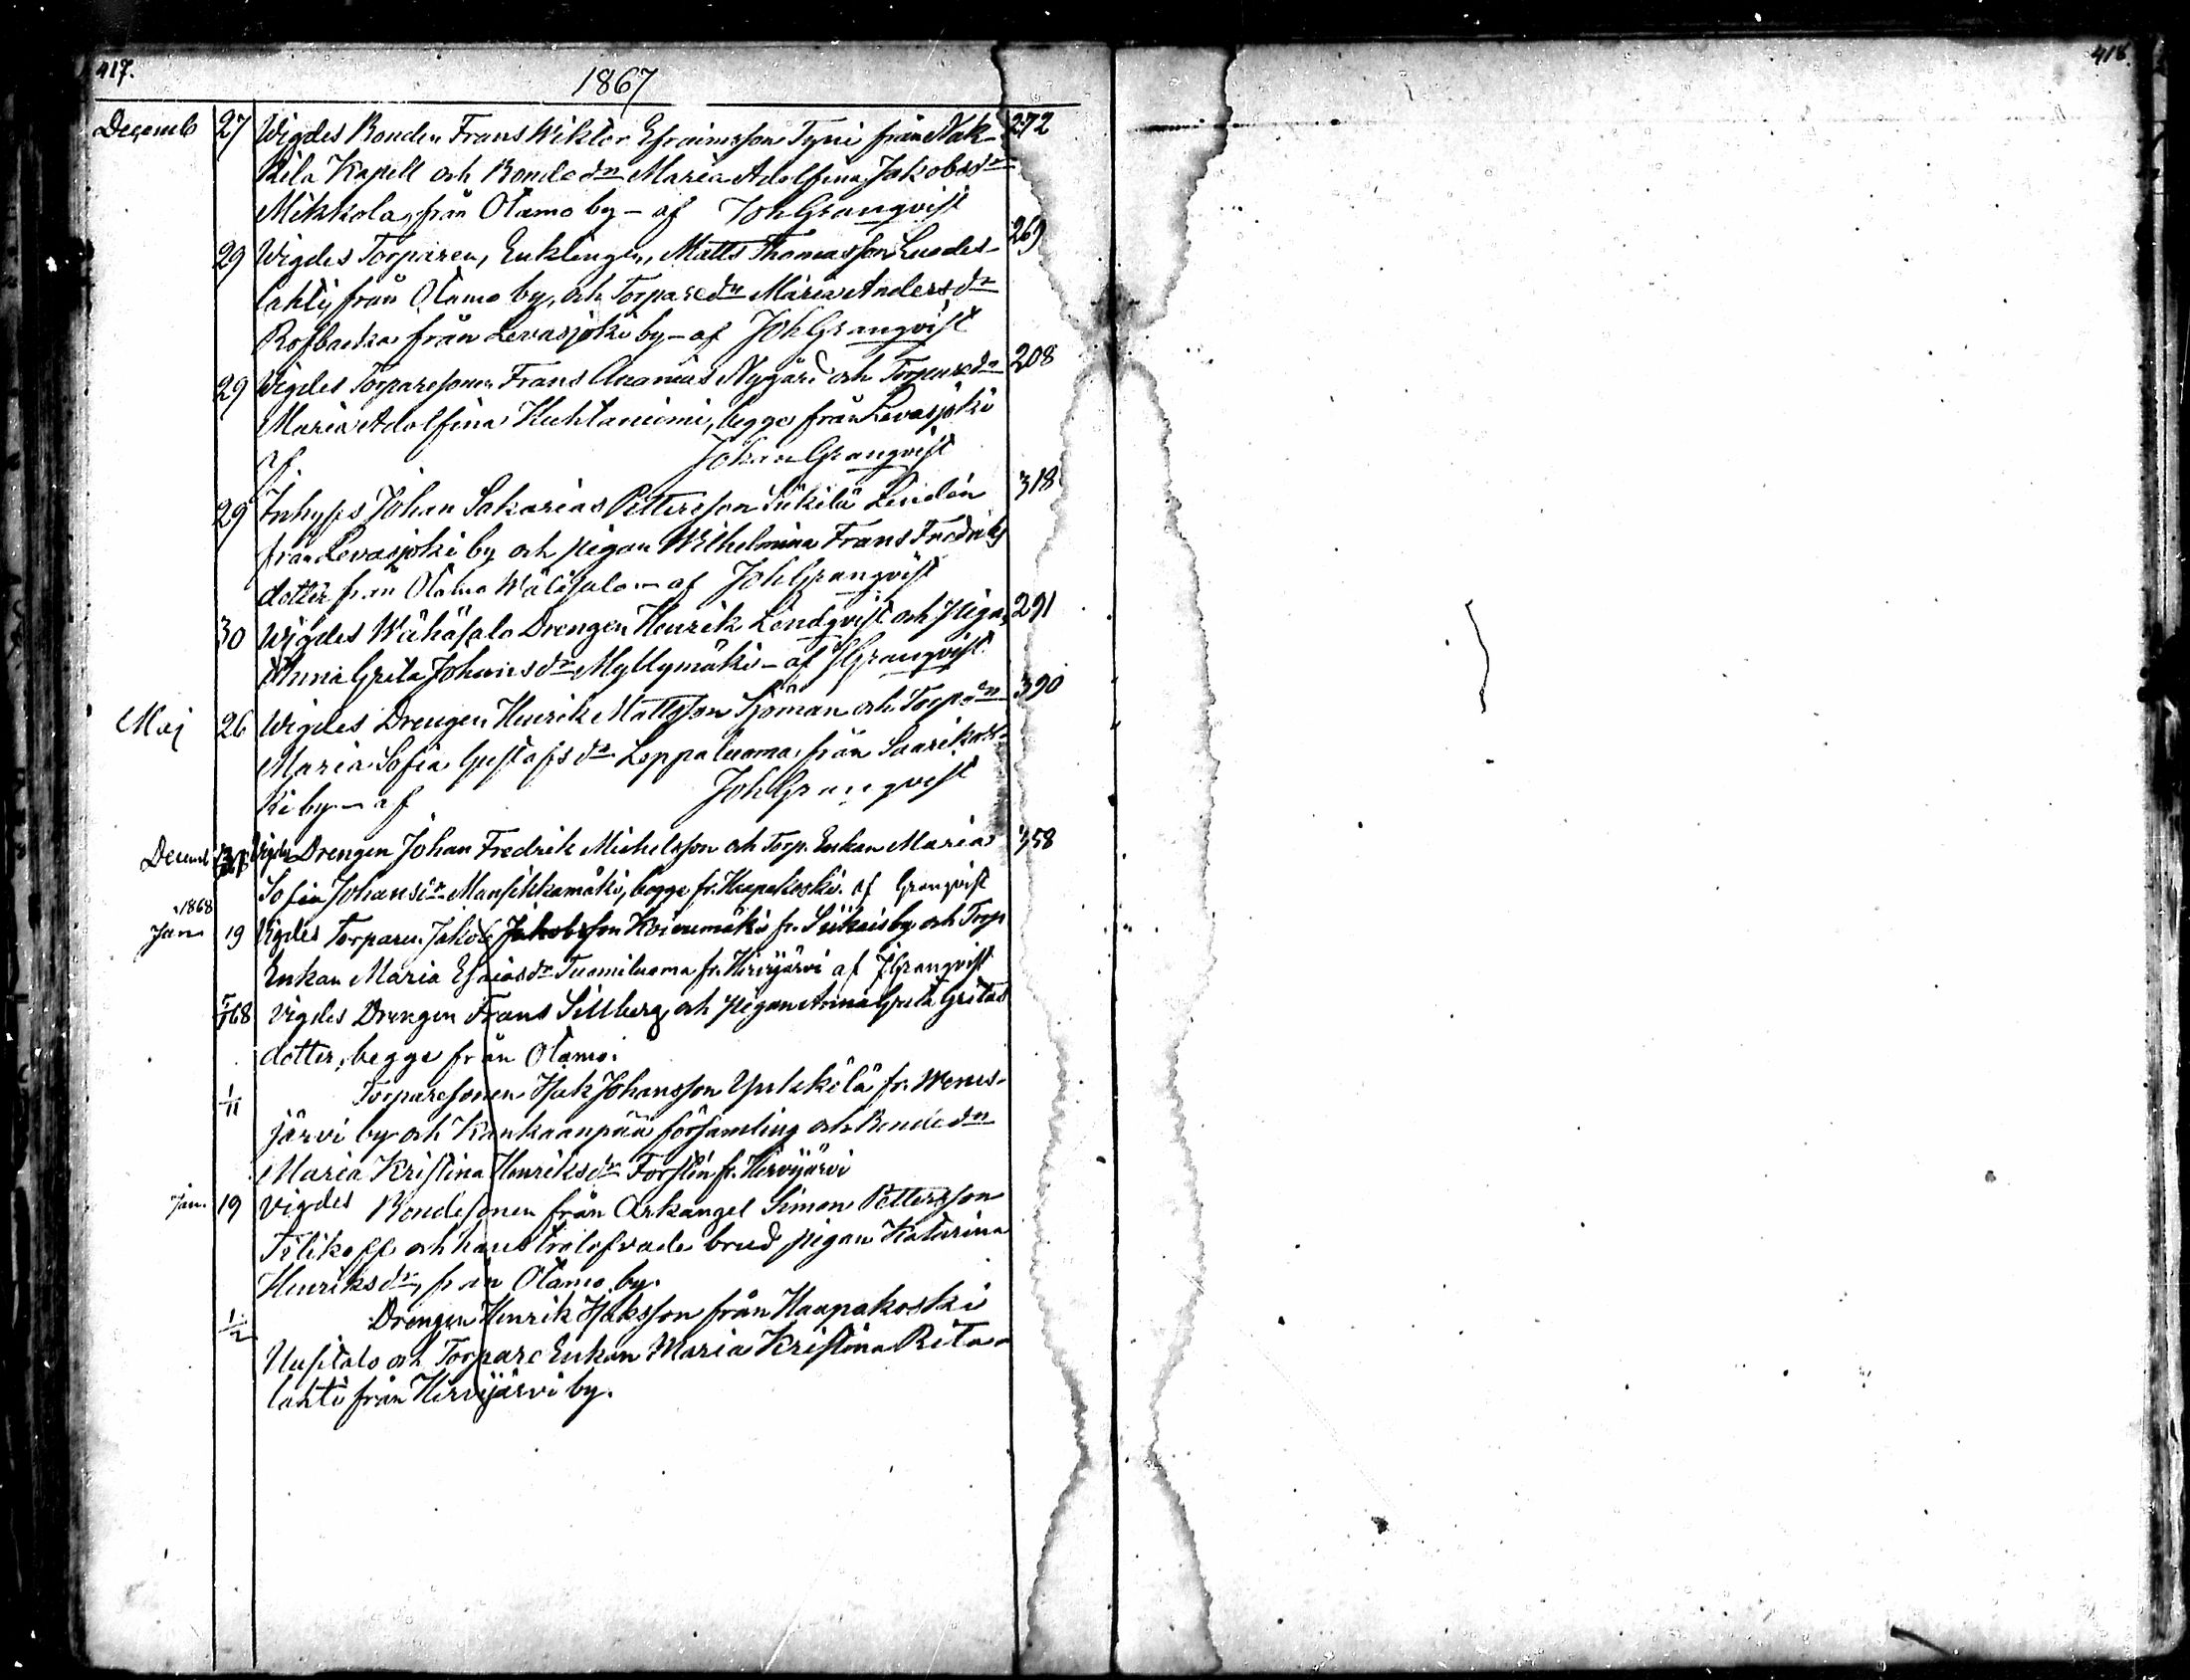 417.
418.
1867
Decemb 27 Wigdes Bonden Frans Wiktor Efraimsson Tyni från Nak- 272
kila Kapell och Bonde dn Maria Adolfina Jakobs dr
Mikkola, från Otamo by - af Joh Granqvist
29 Wigdes Torparen, Enklingen, Matts Thomasson Luodes- 269
lahti från Otamo by, och Torpare dn Maria Anders dr
från Levasjoki by - af Joh Granqvist
29 Wigdes Torparesonen Frans Ananias Nygård och Torpare dn 208
Maria Adolfina Huhtaniemi, begge från Levasjoki
af Johan Granqvist
29 Inhyss Johan Sakarias Pettersson Siikilä Lindén 318
från Levasjoki by och pigan Wilhelmina Frans Fredriks
dotter från Otamo - af Joh Granqvist
30 Wigdes Wähäsalo Drengen Henrik Lindqvist och Pigan 291
Anna Greta Johans dr Myllymäki - af J Granqvist
Maj 26 Wigdes Drengen Henrik Mattsson Sjöman och Torp dn 390
Maria Sofia Gustafs dr Leppäluoma från Saarikos-
ki by - af Joh Granqvist
Decemb Vigdes Drengen Johan Fredrik Michelsson och Torp. Enkan Maria 358
Sofia Johans dr Mansikkamäki, begge fr. Haapakoski. af Granqvist
1868
Jan 19 Vigdes Torparen Jakob Jakobsson Koivumäki fr. Siikais by och Torp
Enkan Maria Esaias dr Tuomiluoma fr. Hirvijärvi af J Granqvist
68 Vigdes Drengen Frans Sillberg och pigan Anna Greta Gretas
dotter, begge från Otamo.
1/11 Torparesonen Isak Johansson fr. Wenes-
järvi by och Kankaanpää församling och Bonde dn
Maria Kristina Henriks dr Forslin fr. Hirvijärvi
Jan. 19 Vigdes Bondesonen från Arkangel Simon Pettersson
och hans trolofvade brud pigan Katarina
Henriks dr, från Otamo by.
1/12 Drengen Henrik Isaksson från Haapakoski
Uusitalo och Torpare Enkan Maria Kristina Rita-
lahti från Hirvijärvi by.